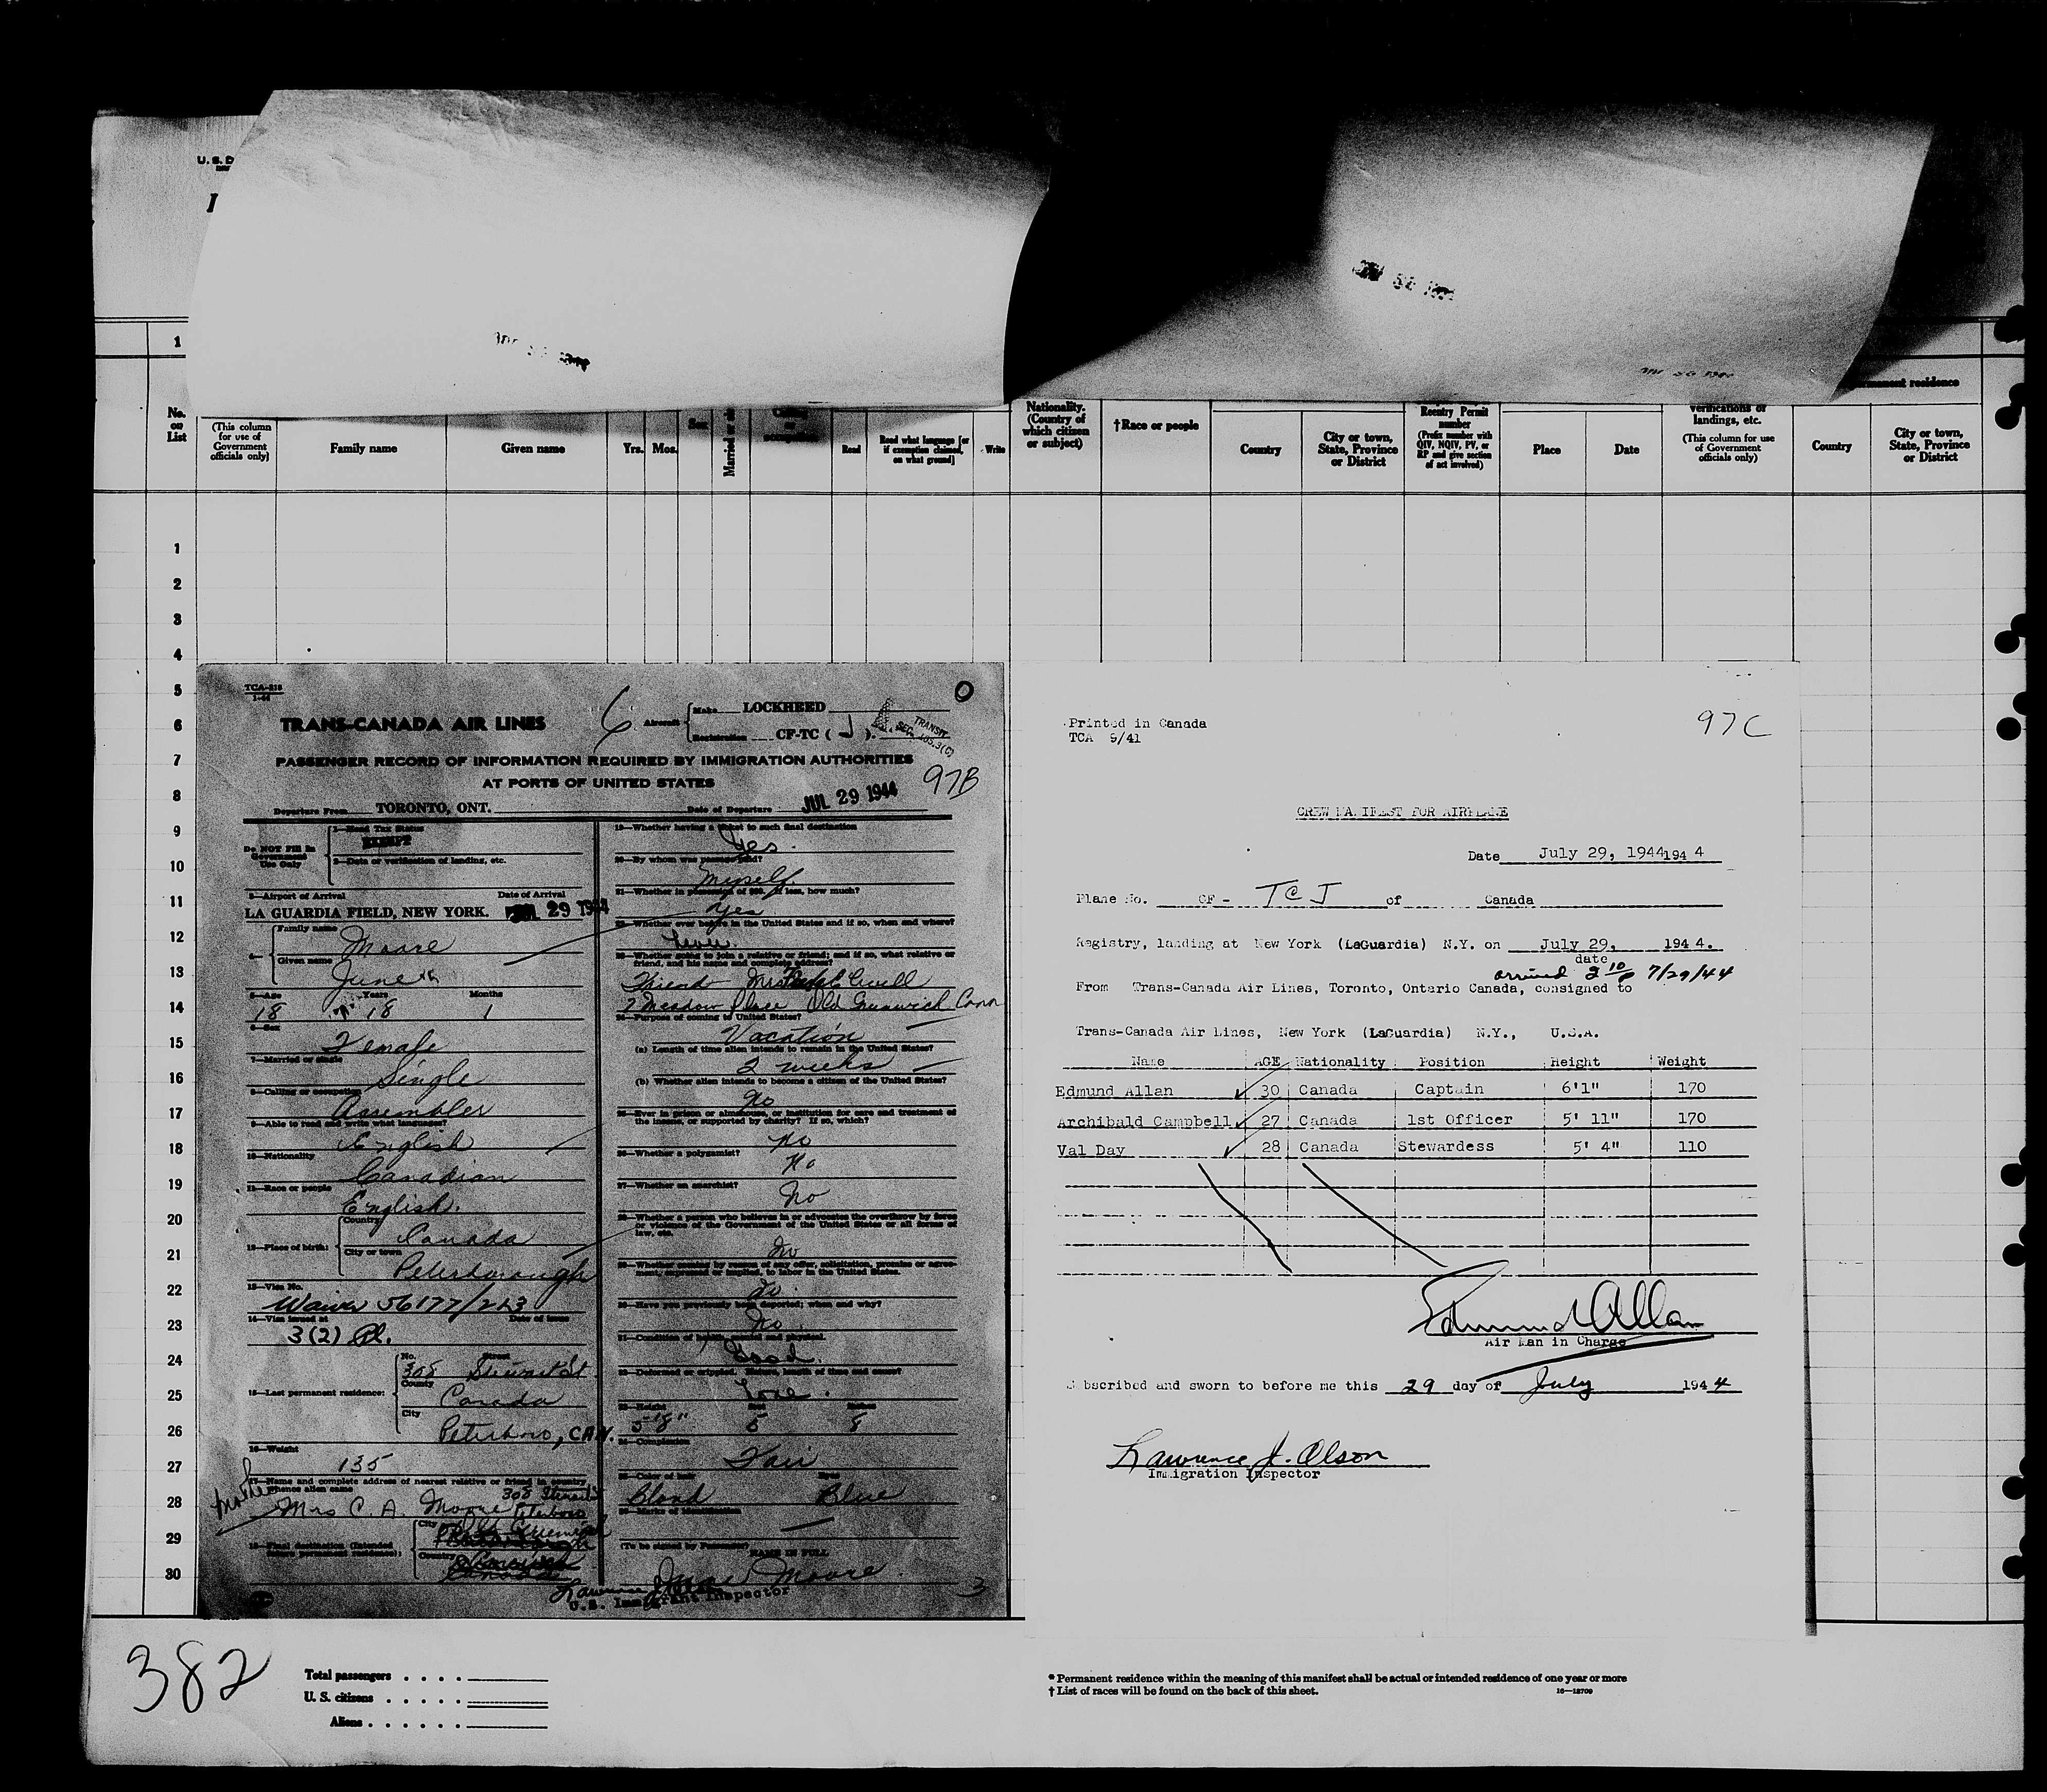 U. S. D
I
1
No. on List
(This column for use of Government officials only)
Family name
Given name
Yrs.
Mos.
Sex
Read
Read what language [or if exemption claimed, on what ground]
Write
Nationality. (Country of which citizen or subject)
†Race or people
Country
City or town, State, Province or District
Reentry Permit number (Prefix number with QIV, NQIV, PV, or RP and give section of act involved)
Place
Date
verifications of landings, etc. (This column for use of Government officials only)
permanent residence
Country
City or town, State, Province or District
1
2
3
4
5
6
7
8
9
10
11
12
13
14
15
16
17
18
19
20
21
22
23
24
25
26
27
28
29
30
TCA-218
TRANS-CANADA AIR LINES
6
Aircraft
Make LOCKHEED
Registration CF-TC ( J ).
0
TRANSIT
SEC. 105.3(C)
PASSENGER RECORD OF INFORMATION REQUIRED BY IMMIGRATION AUTHORITIES
AT PORTS OF UNITED STATES
97B
Departure From TORONTO, ONT.
Date of Departure JUL 29 1944
Do NOT Fill In Government Use Only
1—Head Tax Status
EXEMPT
2—Date or verification of landing, etc.
3—Airport of Arrival
Date of Arrival
LA GUARDIA FIELD, NEW YORK. JUL 29 1944
4—
Family name Moore
Given name June
5—Age
Years
Months
18
18
1
6—Sex
Female
7—Married or single
Single
8—Calling or occupation
Assembler
9—Able to read and write what languages?
English
10—Nationality
Canadian
11—Race or people
English.
12—Place of birth:
Country
Canada
City or town
Peterborough
13—Visa No.
Waiver 56177/223
14—Visa issued at
Date of Issue
3(2) Pl.
15—Last permanent residence:
No.
Street
308 Stewart St.
County
Canada
City
Peterboro, CAN.
16—Weight
135
17—Name and complete address of nearest relative or friend in country whence alien came
mother
Mrs C. A. Moore
308 Stewart
Peterboro
18—Final destination (Intended future permanent residence):
City
Old Greenwich
Country
19—Whether having a ticket to such final destination
Yes.
20—By whom was passage paid?
Myself.
21—Whether in possession of $50, if less, how much?
Yes
22—Whether ever before in the United States and if so, when and where?
23—Whether going to join a relative or friend; and if so, what relative or friend, and his name and complete address?
Friend Mrs
7 Meadow Place Old Greenwich Conn
24—Purpose of coming to United States?
Vacation
(a) Length of time alien intends to remain in the United States?
2 weeks
(b) Whether alien intends to become a citizen of the United States?
No
25—Ever in prison or almshouse, or institution for care and treatment of the insane, or supported by charity? If so, which?
No
26—Whether a polygamist?
No
27—Whether an anarchist?
No
28—Whether a person who believes in or advocates the overthrow by force or violence of the Government of the United States or all forms of law, etc.
No
29—Whether coming by reason of any offer, solicitation, promise or agreement, expressed or implied, to labor in the United States.
No.
30—Have you previously been deported; when and why?
No.
31—Condition of health, mental and physical.
Good.
32—Deformed or crippled. Nature, length of time and cause?
33—Height
Feet
Inches
5'8"
5
8
34—Complexion
Fair
35—Color of hair
Eyes
Blond
Blue
36—Marks of identification
(To be signed by Passenger)
NAME IN FULL
June Moore.
U.S. Immigrant Inspector
3
Printed in Canada
TCA 9/41
97C
CREW MANIFEST FOR AIRPLANE
Date July 29, 1944 194 4
Plane No. CF - TCJ of Canada
Registry, landing at New York (LaGuardia) N.Y. on July 29, 194 4.
date
arrived 2 10 P 7/29/44
From Trans-Canada Air Lines, Toronto, Ontario Canada, consigned to
Trans-Canada Air Lines, New York (LaGuardia) N.Y., U.S.A.
Name AGE Nationality Position Height Weight
Edmund Allan 30 Canada Captain 6'1" 170
Archibald Campbell 27 Canada 1st Officer 5' 11" 170
Val Day 28 Canada Stewardess 5' 4" 110
Edmund Allan
Air Man in Charge
Subscribed and sworn to before me this 29 day of July 194 4
Lawrence J. Olson
Immigration Inspector
382
Total passengers . . . .
U. S. citizens . . . . .
Aliens . . . . . .
* Permanent residence within the meaning of this manifest shall be actual or intended residence of one year or more
† List of races will be found on the back of this sheet.
16—12709